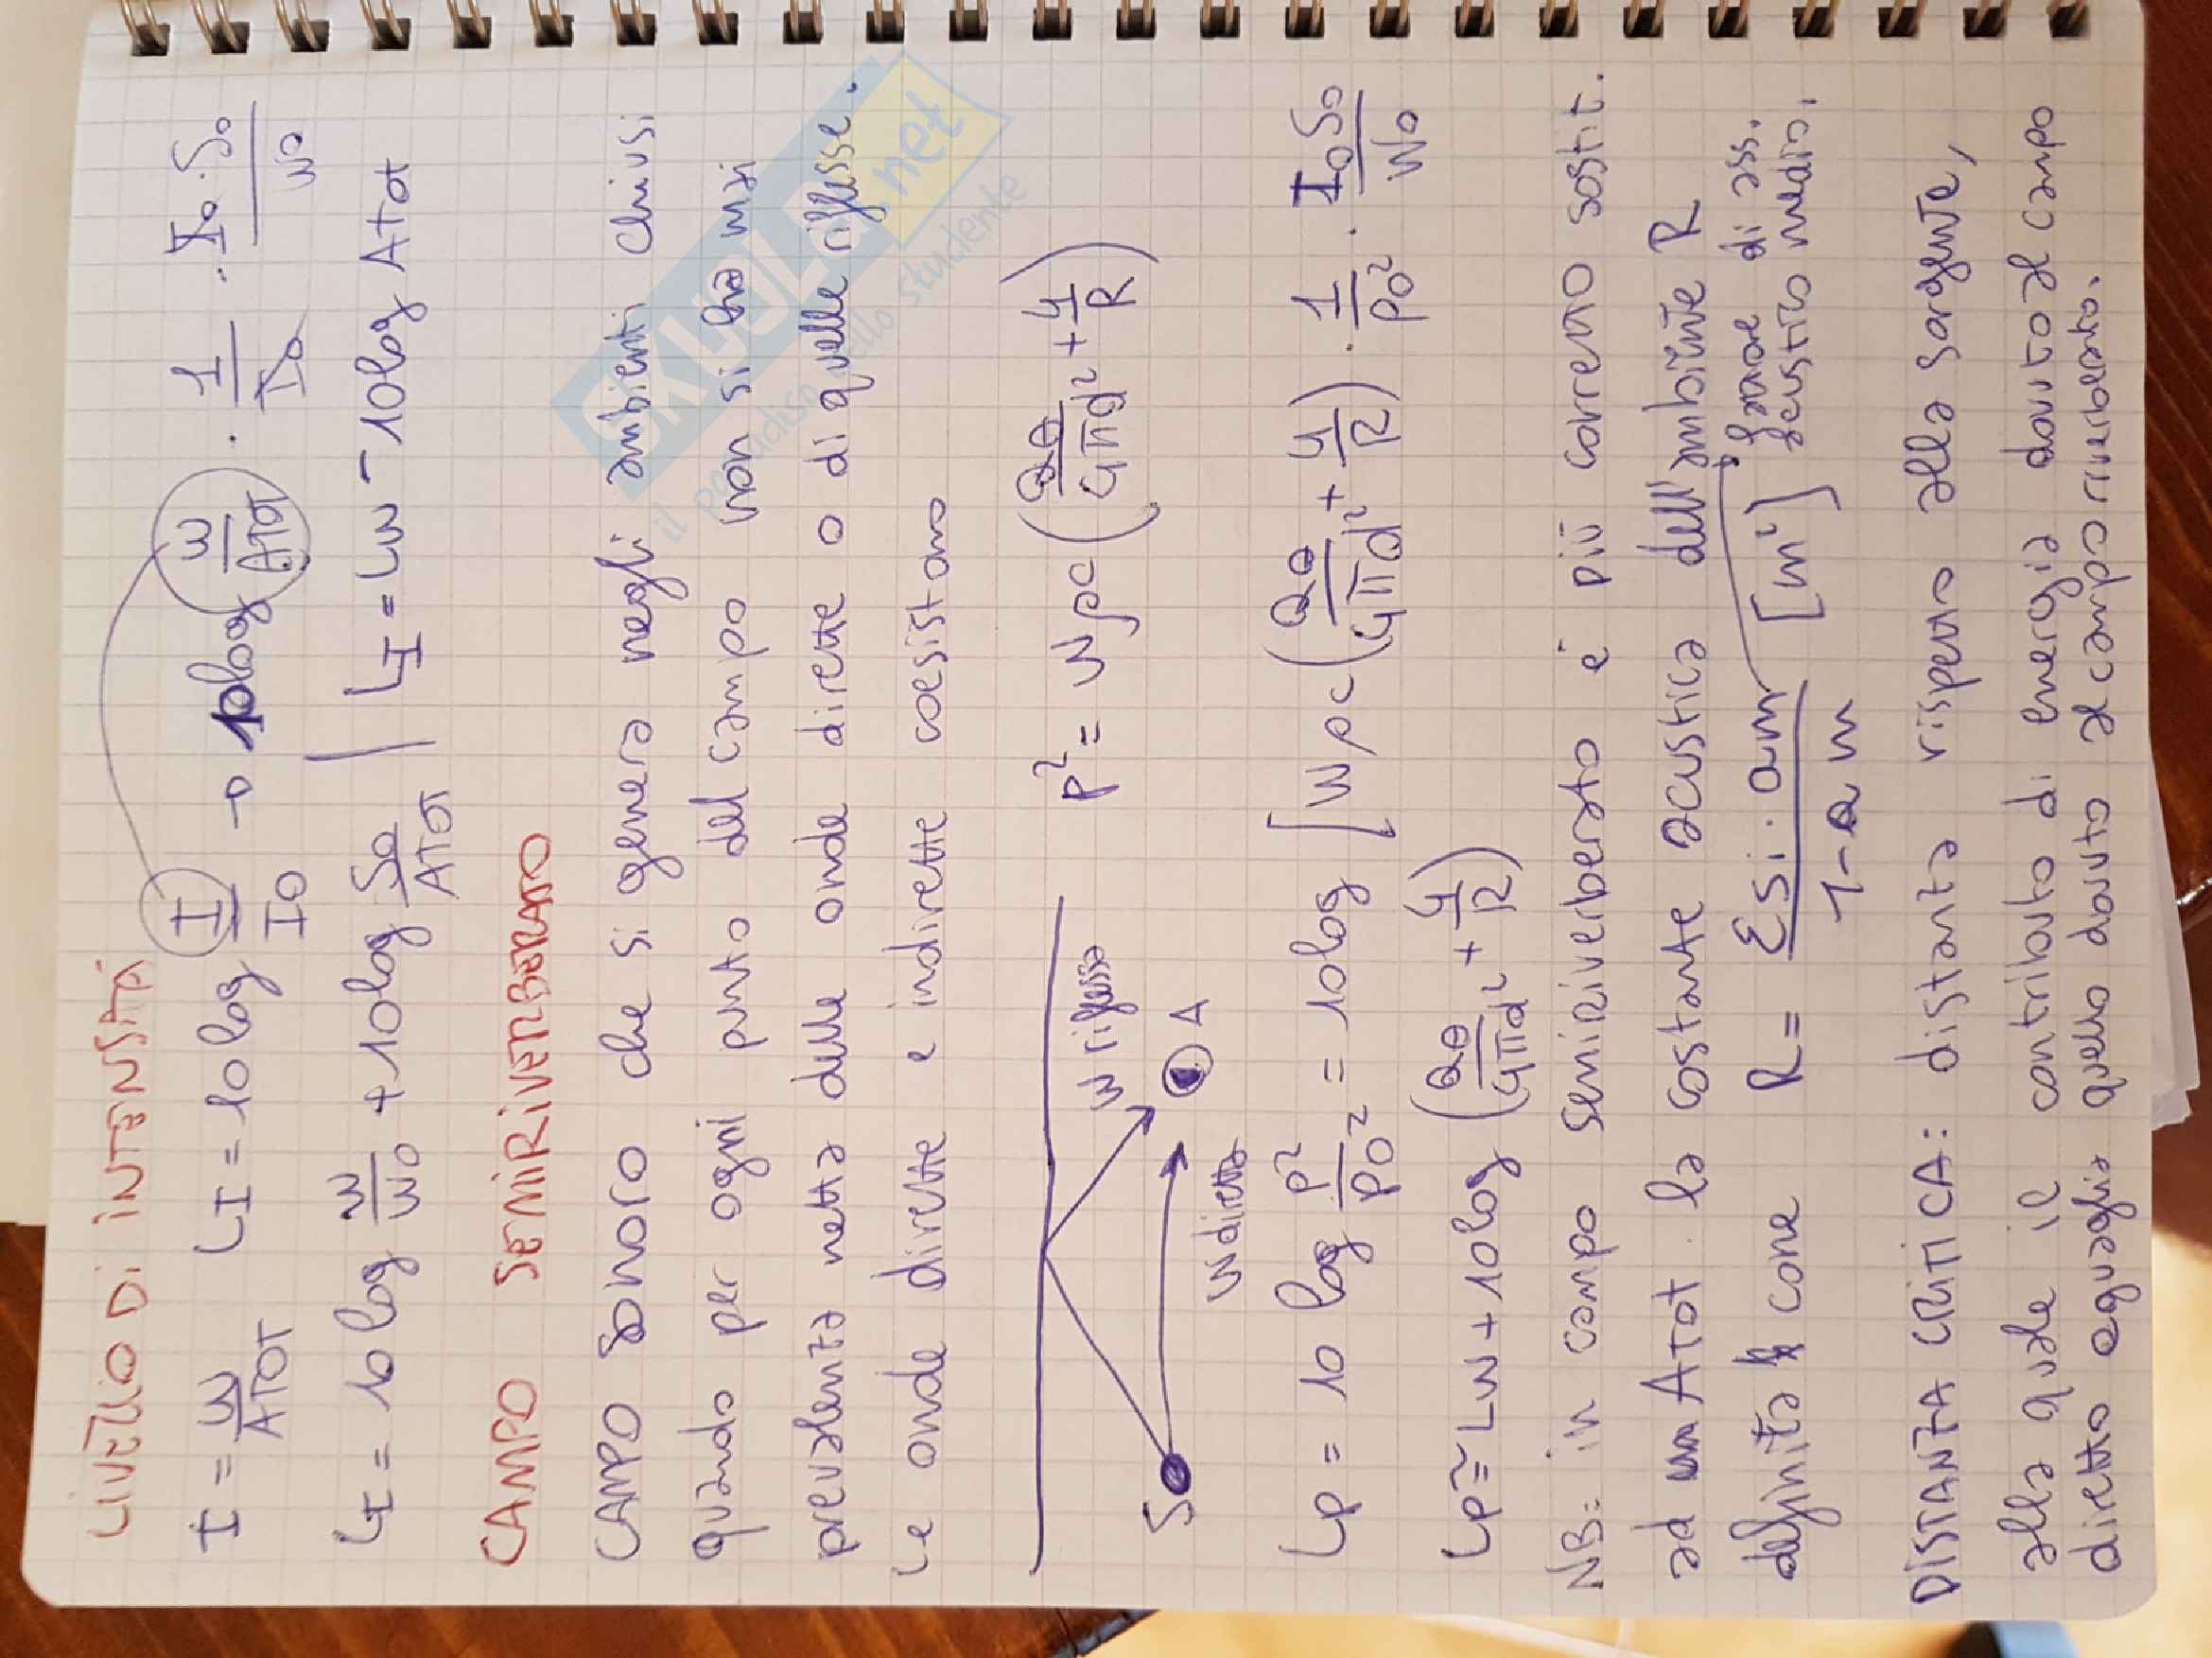 LIVELLO DI INTENSITÀ
I = W/ATOT LI = 10log I/I0 → 10log W/ATOT · 1/I0 · I0·S0/W0
LI = 10log W/W0 + 10log S0/ATOT | LI = LW - 10log Atot
CAMPO SEMIRIVERBERATO
CAMPO SONORO che si genera negli ambienti chiusi
quando per ogni punto del campo non si ha mai
prevalenza netta delle onde dirette o di quelle riflesse.
Le onde dirette e indirette coesistono
p² = Wρc (Qθ/4πd² + 4/R)
W riflessa
S A
W diretta
Lp = 10 log p²/p0² = 10log [Wρc (Qθ/4πd² + 4/R) · 1/p0² · I0S0/W0
Lp ≅ LW + 10log (Qθ/4πd² + 4/R)
NB: in campo semiriverberato è più corretto sostit.
ad un Atot la costante acustica dell'ambiente R
definita come R = ΣSi·αm/1-αm [m²] di ass. acustico medio.
DISTANZA CRITICA: distanza rispetto alla sorgente,
alla quale il contributo di energia dovuto al campo
diretto eguaglia quello dovuto al campo riverberato.
SKUOLA.net
il paradiso dello studente